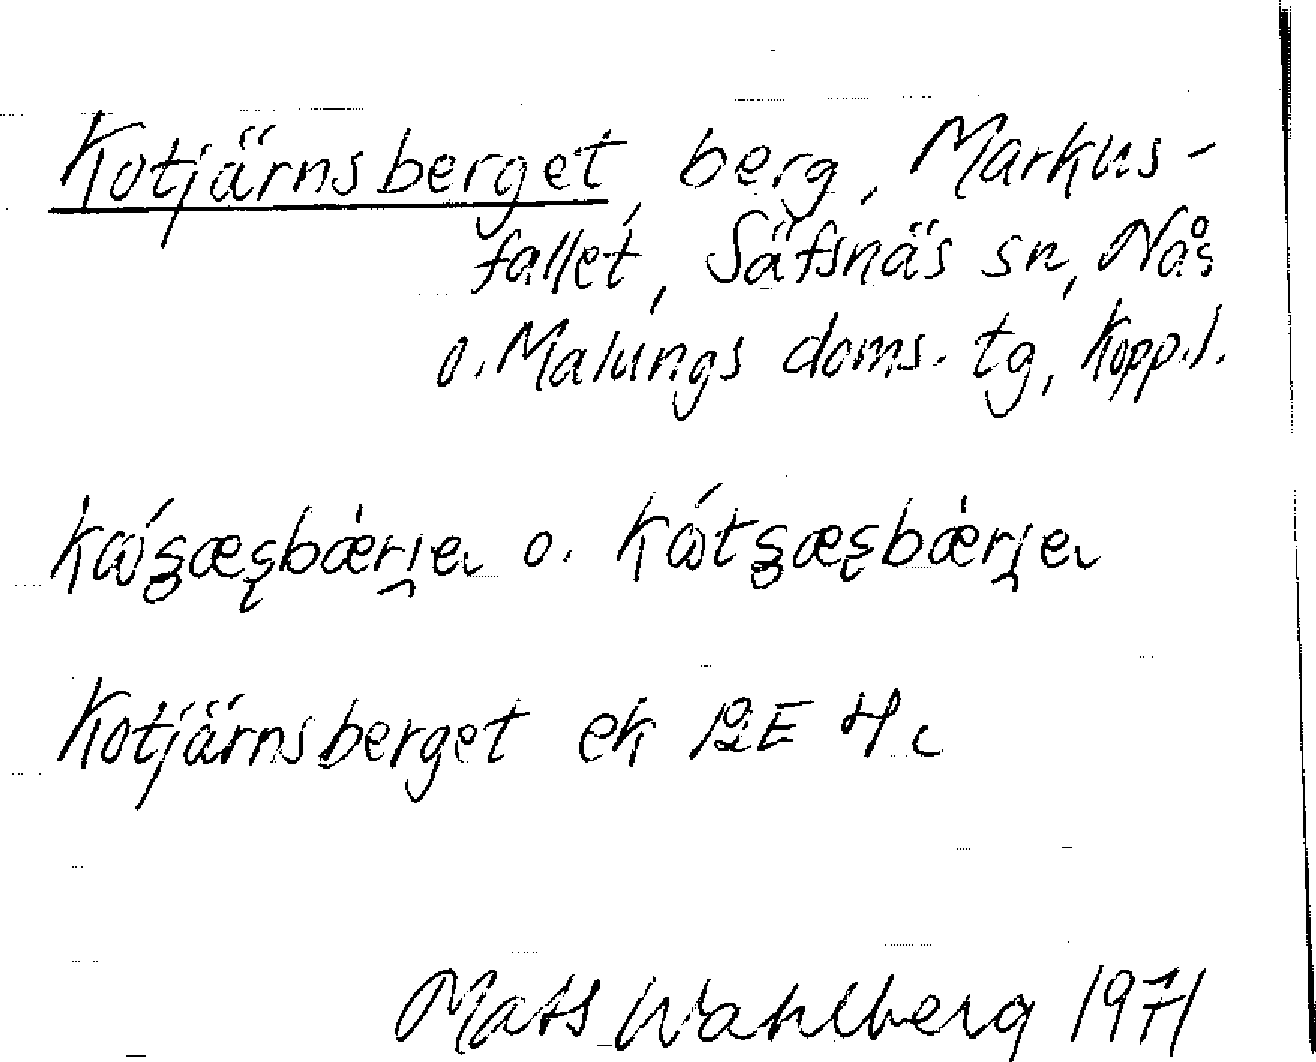 Kotjärnsberget, berg, Markus-
fallet, Säfsnäs sn, Nås
o. Malungs doms. tg, Kopp.l.
o.
Kotjärnsberget ek 12E 4c
Mats Wahlberg 1971